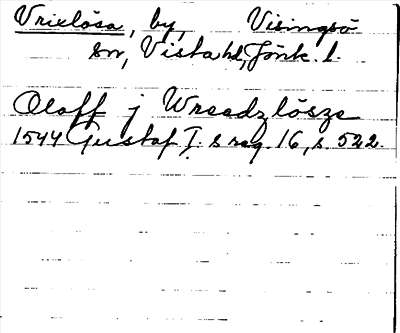 Vrixlösa, by, Visingsö
sn, Vista hd, Jönk. l.
Olaff j Wraadzlösze
1544 Gustaf I:s reg. 16, s. 522.